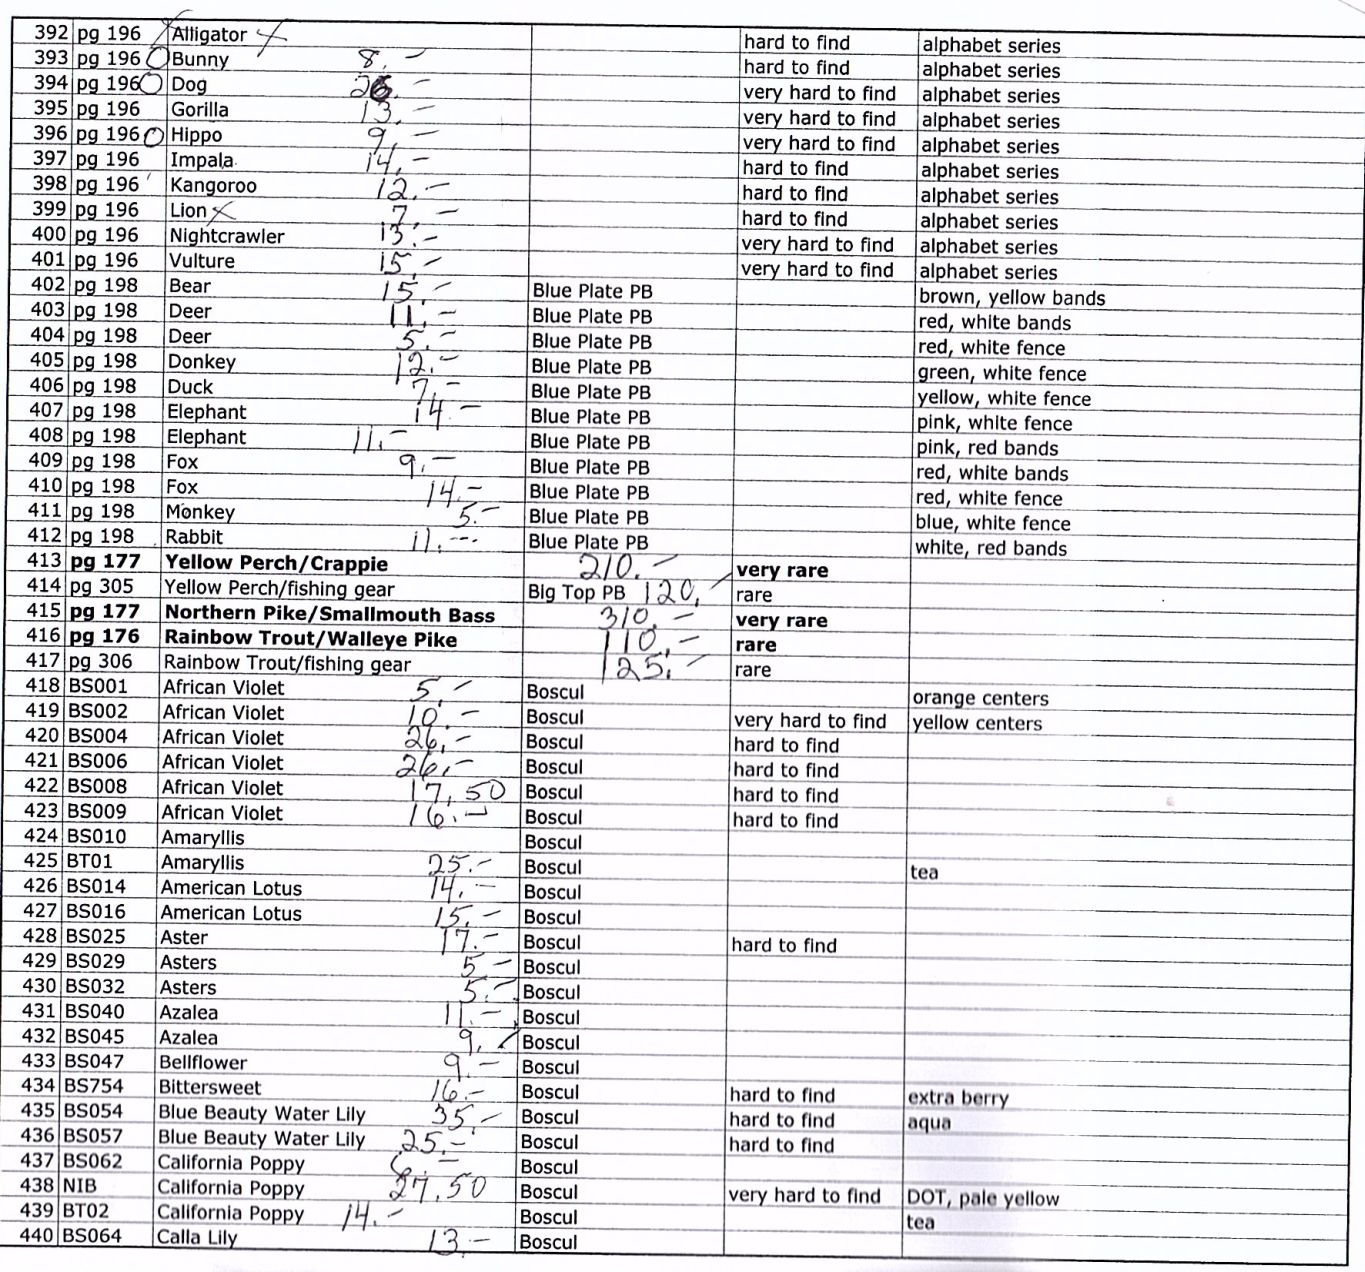 392 pg 196 Alligator hard to find alphabet series
393 pg 196 Bunny 8.- hard to find alphabet series
394 pg 196 Dog very hard to find alphabet series
395 pg 196 Gorilla 13.- very hard to find alphabet series
396 pg 196 Hippo 9.- very hard to find alphabet series
397 pg 196 Impala 14.- hard to find alphabet series
398 pg 196 Kangoroo 12.- hard to find alphabet series
399 pg 196 Lion 7.- hard to find alphabet series
400 pg 196 Nightcrawler 13.- very hard to find alphabet series
401 pg 196 Vulture 15.- very hard to find alphabet series
402 pg 198 Bear 15.- Blue Plate PB brown, yellow bands
403 pg 198 Deer 11.- Blue Plate PB red, white bands
404 pg 198 Deer 5.- Blue Plate PB red, white fence
405 pg 198 Donkey 12.- Blue Plate PB green, white fence
406 pg 198 Duck 7.- Blue Plate PB yellow, white fence
407 pg 198 Elephant 14 - Blue Plate PB pink, white fence
408 pg 198 Elephant 11.- Blue Plate PB pink, red bands
409 pg 198 Fox 9.- Blue Plate PB red, white bands
410 pg 198 Fox 14.- Blue Plate PB red, white fence
411 pg 198 Monkey 5.- Blue Plate PB blue, white fence
412 pg 198 Rabbit 11.-- Blue Plate PB white, red bands
413 pg 177 Yellow Perch/Crappie 210.- very rare
414 pg 305 Yellow Perch/fishing gear Big Top PB 120.- rare
415 pg 177 Northern Pike/Smallmouth Bass 310.- very rare
416 pg 176 Rainbow Trout/Walleye Pike 110.- rare
417 pg 306 Rainbow Trout/fishing gear 125.- rare
418 BS001 African Violet 5.- Boscul orange centers
419 BS002 African Violet 10.- Boscul very hard to find yellow centers
420 BS004 African Violet 26.- Boscul hard to find
421 BS006 African Violet 26.- Boscul hard to find
422 BS008 African Violet 17.50 Boscul hard to find
423 BS009 African Violet 16.- Boscul hard to find
424 BS010 Amaryllis Boscul
425 BT01 Amaryllis 25.- Boscul tea
426 BS014 American Lotus 14.- Boscul
427 BS016 American Lotus 15.- Boscul
428 BS025 Aster 17.- Boscul hard to find
429 BS029 Asters 5 - Boscul
430 BS032 Asters 5.- Boscul
431 BS040 Azalea 11.- Boscul
432 BS045 Azalea 9.- Boscul
433 BS047 Bellflower 9.- Boscul
434 BS754 Bittersweet 16.- Boscul hard to find extra berry
435 BS054 Blue Beauty Water Lily 35.- Boscul hard to find aqua
436 BS057 Blue Beauty Water Lily 25.- Boscul hard to find
437 BS062 California Poppy 6.- Boscul
438 NIB California Poppy 27.50 Boscul very hard to find DOT, pale yellow
439 BT02 California Poppy 14.- Boscul tea
440 BS064 Calla Lily 13.- Boscul